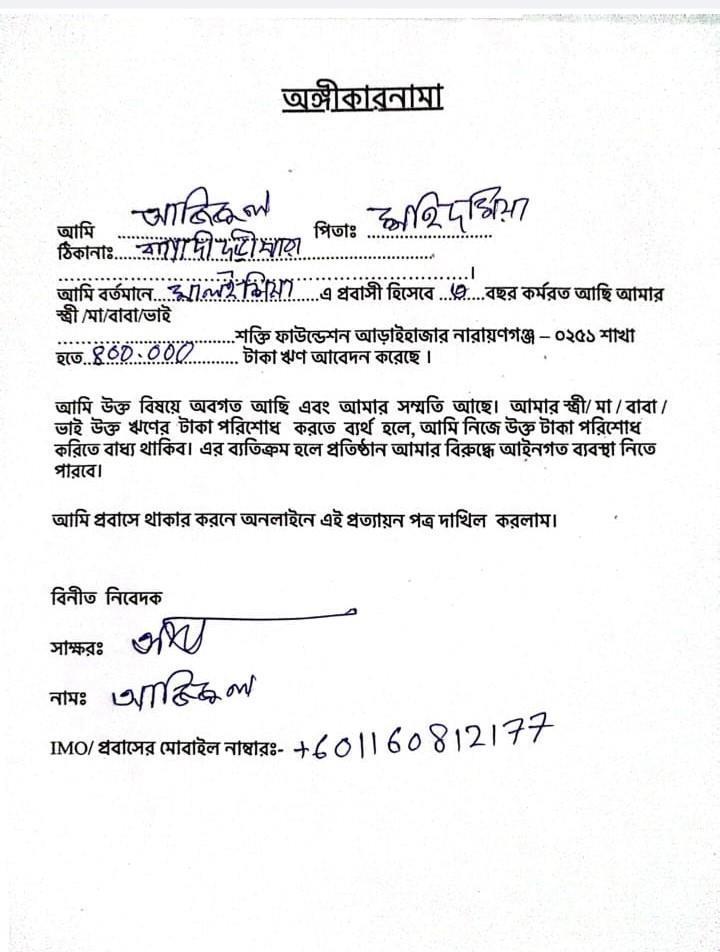 অঙ্গীকারনামা
আমি আজিজুল পিতাঃ মিয়া
ঠিকানাঃ
আমি বর্তমানে মালইশিয়া এ প্রবাসী হিসেবে ৩ বছর কর্মরত আছি আমার
স্ত্রী /মা/বাবা/ভাই
শক্তি ফাউন্ডেশন আড়াইহাজার নারায়ণগঞ্জ – ০২৫১ শাখা
হতে 800.000 টাকা ঋণ আবেদন করেছে ।
আমি উক্ত বিষয়ে অবগত আছি এবং আমার সম্মতি আছে। আমার স্ত্রী/ মা / বাবা /
ভাই উক্ত ঋণের টাকা পরিশোধ করতে ব্যর্থ হলে, আমি নিজে উক্ত টাকা পরিশোধ
করিতে বাধ্য থাকিব। এর ব্যতিক্রম হলে প্রতিষ্ঠান আমার বিরুদ্ধে আইনগত ব্যবস্থা নিতে
পারবে।
আমি প্রবাসে থাকার করনে অনলাইনে এই প্রত্যায়ন পত্র দাখিল করলাম।
বিনীত নিবেদক
সাক্ষরঃ
নামঃ আজিজুল
IMO/ প্রবাসের মোবাইল নাম্বারঃ- +601160812177